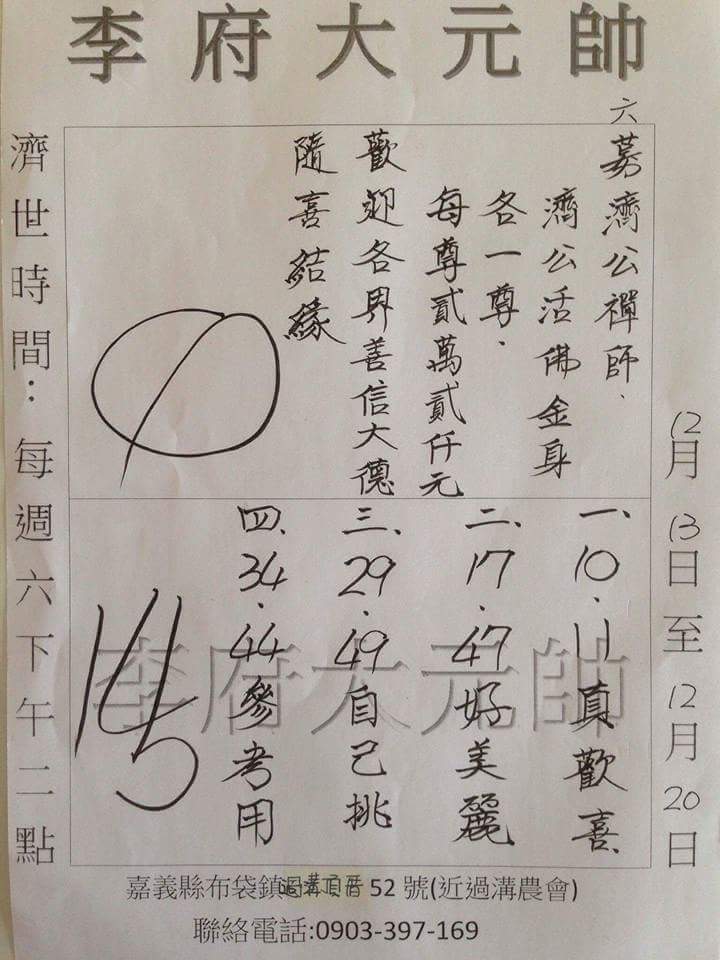 李府大元帥
六
募濟公禪師、
濟公活佛金身
各一尊.
每尊貳萬貳仟元
歡迎各界善信大德
隨喜結緣
12月13日至12月20日
濟世時間:每週六下午二點
一、10.11真歡喜
二、17.47好美麗
三、29.49自己挑
四、34.44參考用
李府大元帥
嘉義縣布袋鎮過溝頂厝52號(近過溝農會)
聯絡電話:0903-397-169